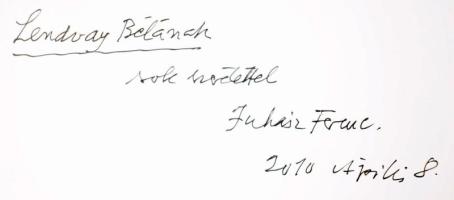 Lendvay Bélának
sok szeretettel
Juhász Ferenc.
2010 április 8.